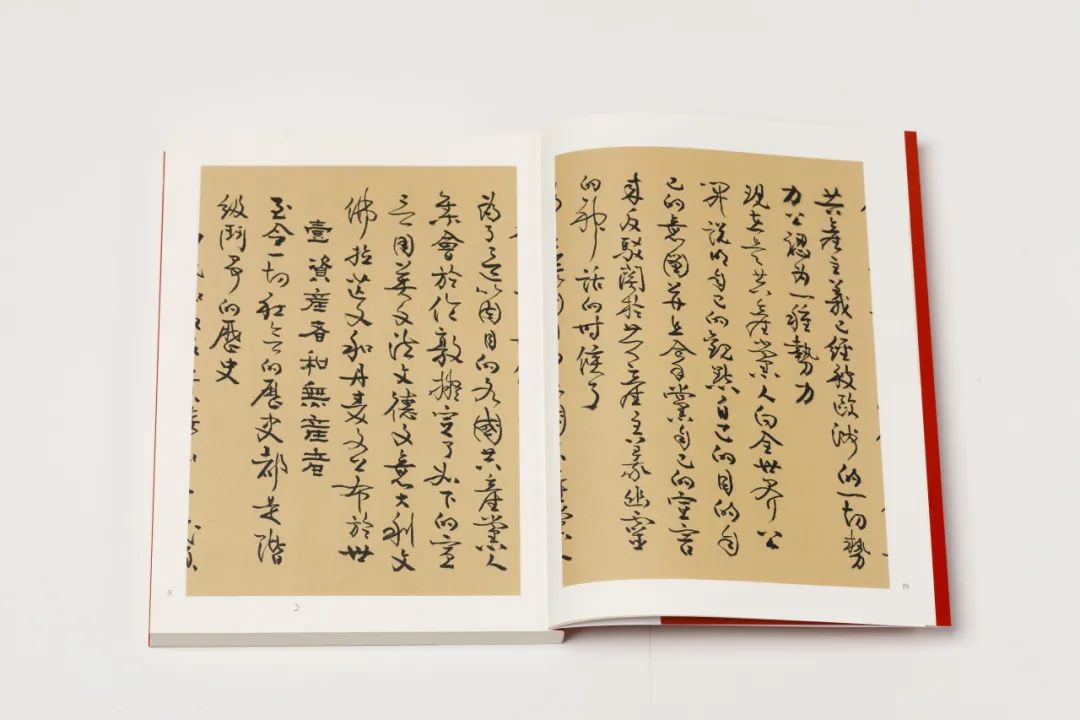 共產主義已經被歐洲的一切勢
力公認为一種勢力
現在是共產黨人向全世界公
開說明自己的觀點自己的目的自
己的意圖并且拿黨自己的宣言
来反駁關於共產主義幽靈
的神話的时候了
四
为了这个目的各國共產黨人
集會於倫敦擬定了如下的宣
言用英文法文德文意大利文
佛拉芒文和丹麦文公布於世
壹資産者和無産者
至今一切社会的歷史都是階
級鬥爭的歷史
五